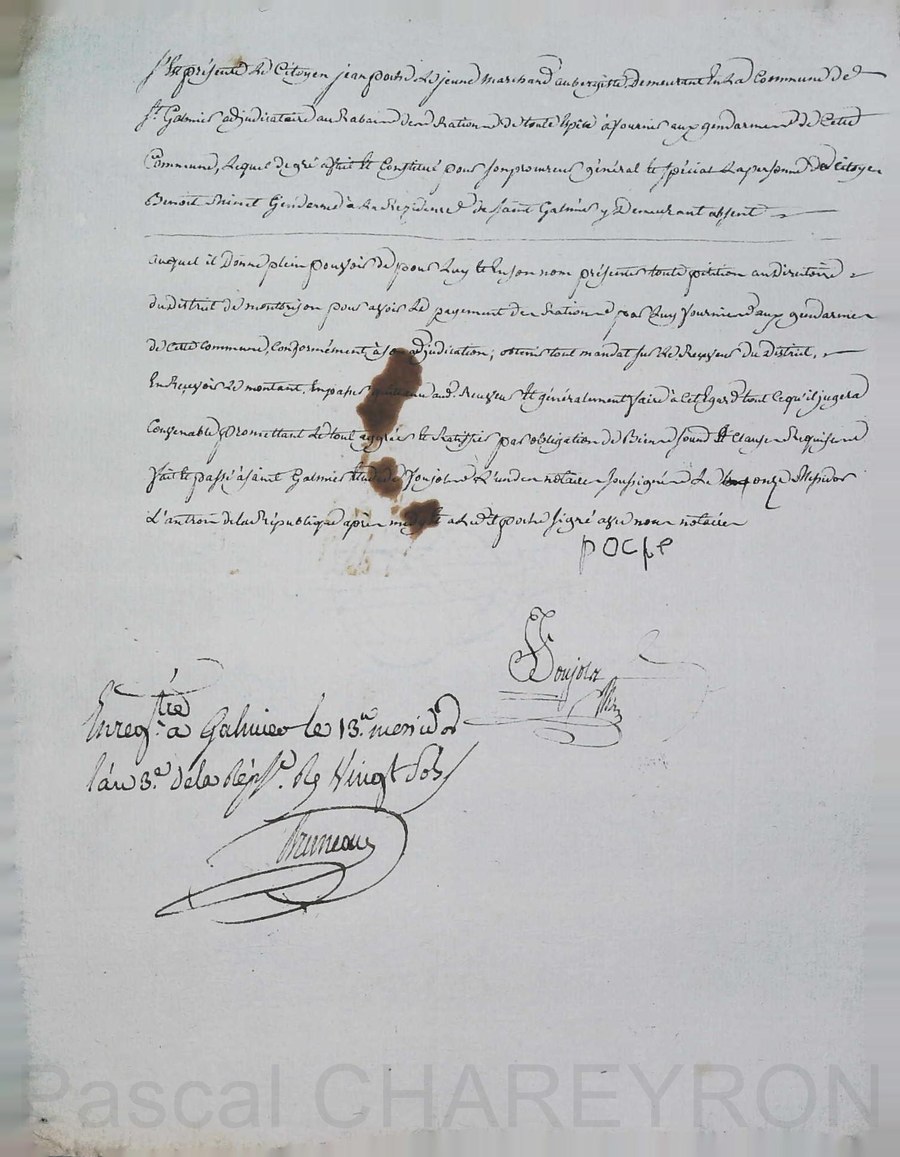 S'est présenté Le Citoyen jean poche Le jeune Marchand aubergiste Demeurant En La Commune de
St. Galmier adjudicataire au Rabais des Rations de toute Espèce à fournir aux gendarmes de Cette
Commune, Lequel de gré a fait Et Constitué pour son procureur général Et spécial La personne du Citoyen
Benoit Gendarme à La Rezidence de saint Galmier y Demeurant absent
auquel il Donne plein pouvoir de pour Luy Et En son nom présenter toute pétition au Directoire
du District de montbrison pour avoir Le payement des Rations par Luy fournies aux gendarmes
de Cette Commune, Conformément à son adjudication, obtenir tout mandat sur Le Receveur du District,
En Recevoir Le montant, En passer quittance aud. Receveur Et généralement faire à Cet Egard tout Ce qu'il jugera
Convenable promettant Le tout aggréer Et Ratiffier par obligation de Biens Et Clauses Requises
fait Et passé à saint Galmier Etude de L'un des notaires soussignés Le onze Messidor
L'an trois de la République après midy Et a Led. poche signé avec nous notaires
poche
Enregtré. a Galmier le 13. messidor
l'an 3e. de la Rép. R Vingt Sols
Bruneau
Pascal CHAREYRON